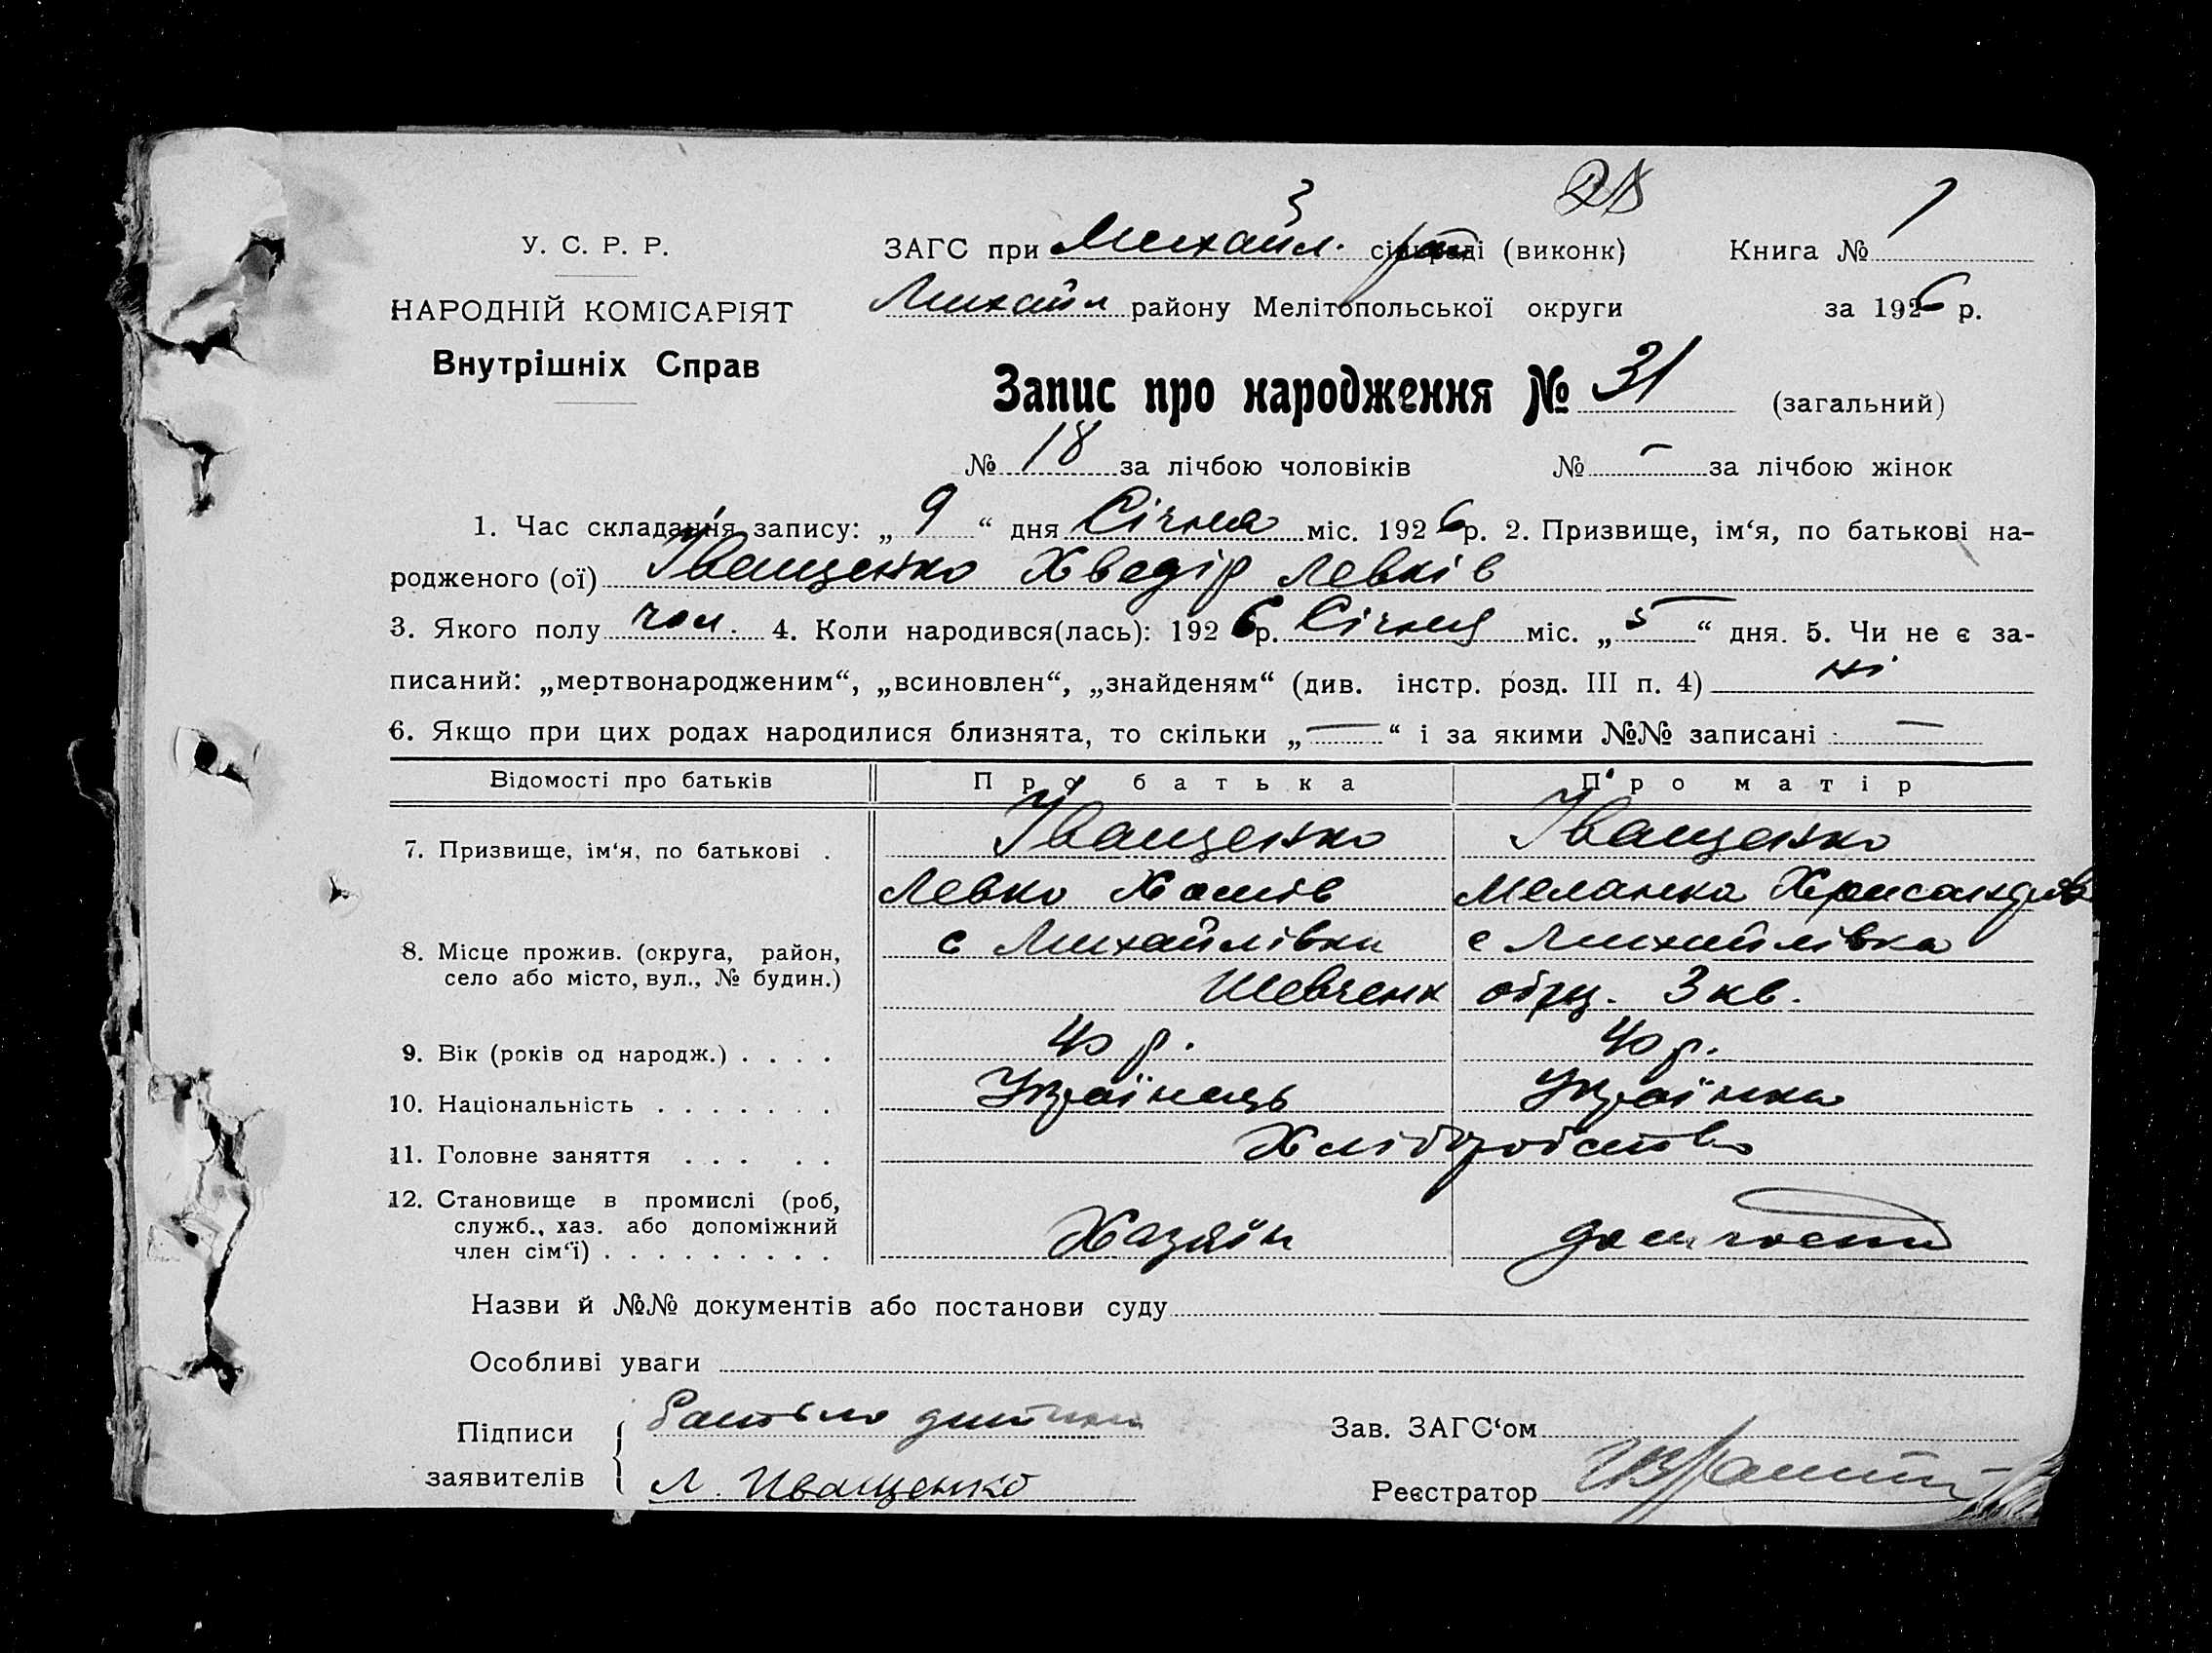 3
28
У. С. Р. Р.
ЗАГС при Михайл. сільраді (виконк) Книга № 1
НАРОДНІЙ КОМІСАРІЯТ
Михайл району Мелітопольської округи за 1926 р.
Внутрішніх Справ
Запис про народження № 31 (загальний)
№ 18 за лічбою чоловіків № — за лічбою жінок
1. Час складання запису: „ 9 “ дня Січня міс. 1926 р. 2. Призвище, ім‘я, по батькові на-
родженого (ої) Іващенко Хведір Левків
3. Якого полу чол. 4. Коли народився(лась): 1926 р. Січня міс. „ 5 “ дня. 5. Чи не є за-
писаний: „мертвонародженим“, „всиновлен“, „знайденям“ (див. інстр. розд. III п. 4) ні
6. Якщо при цих родах народилися близнята, то скільки „ — “ і за якими №№ записані : —
Відомості про батьків Про батька Про матір
7. Призвище, ім‘я, по батькові . Іващенко Іващенко
Левко Хомів Меланка Хрисандрова
8. Місце прожив. (округа, район, с Михайлівки с Михайлівка
село або місто, вул., № будин.) Шевченк общ. 3 кв.
9. Вік (років од народж.) . . . . 40 р. 40 р.
10. Національність . . . . . . . Українець Українка
11. Головне заняття . . . . . Хліборобство
12. Становище в промислі (роб,
служб., хаз. або допоміжний Хазяїн
член сім‘ї) . . . . . . . . .
Назви й №№ документів або постанови суду
Особливі уваги
Підписи Батько дитини Зав. ЗАГС‘ом
заявителів Л. Иващенко Реєстратор